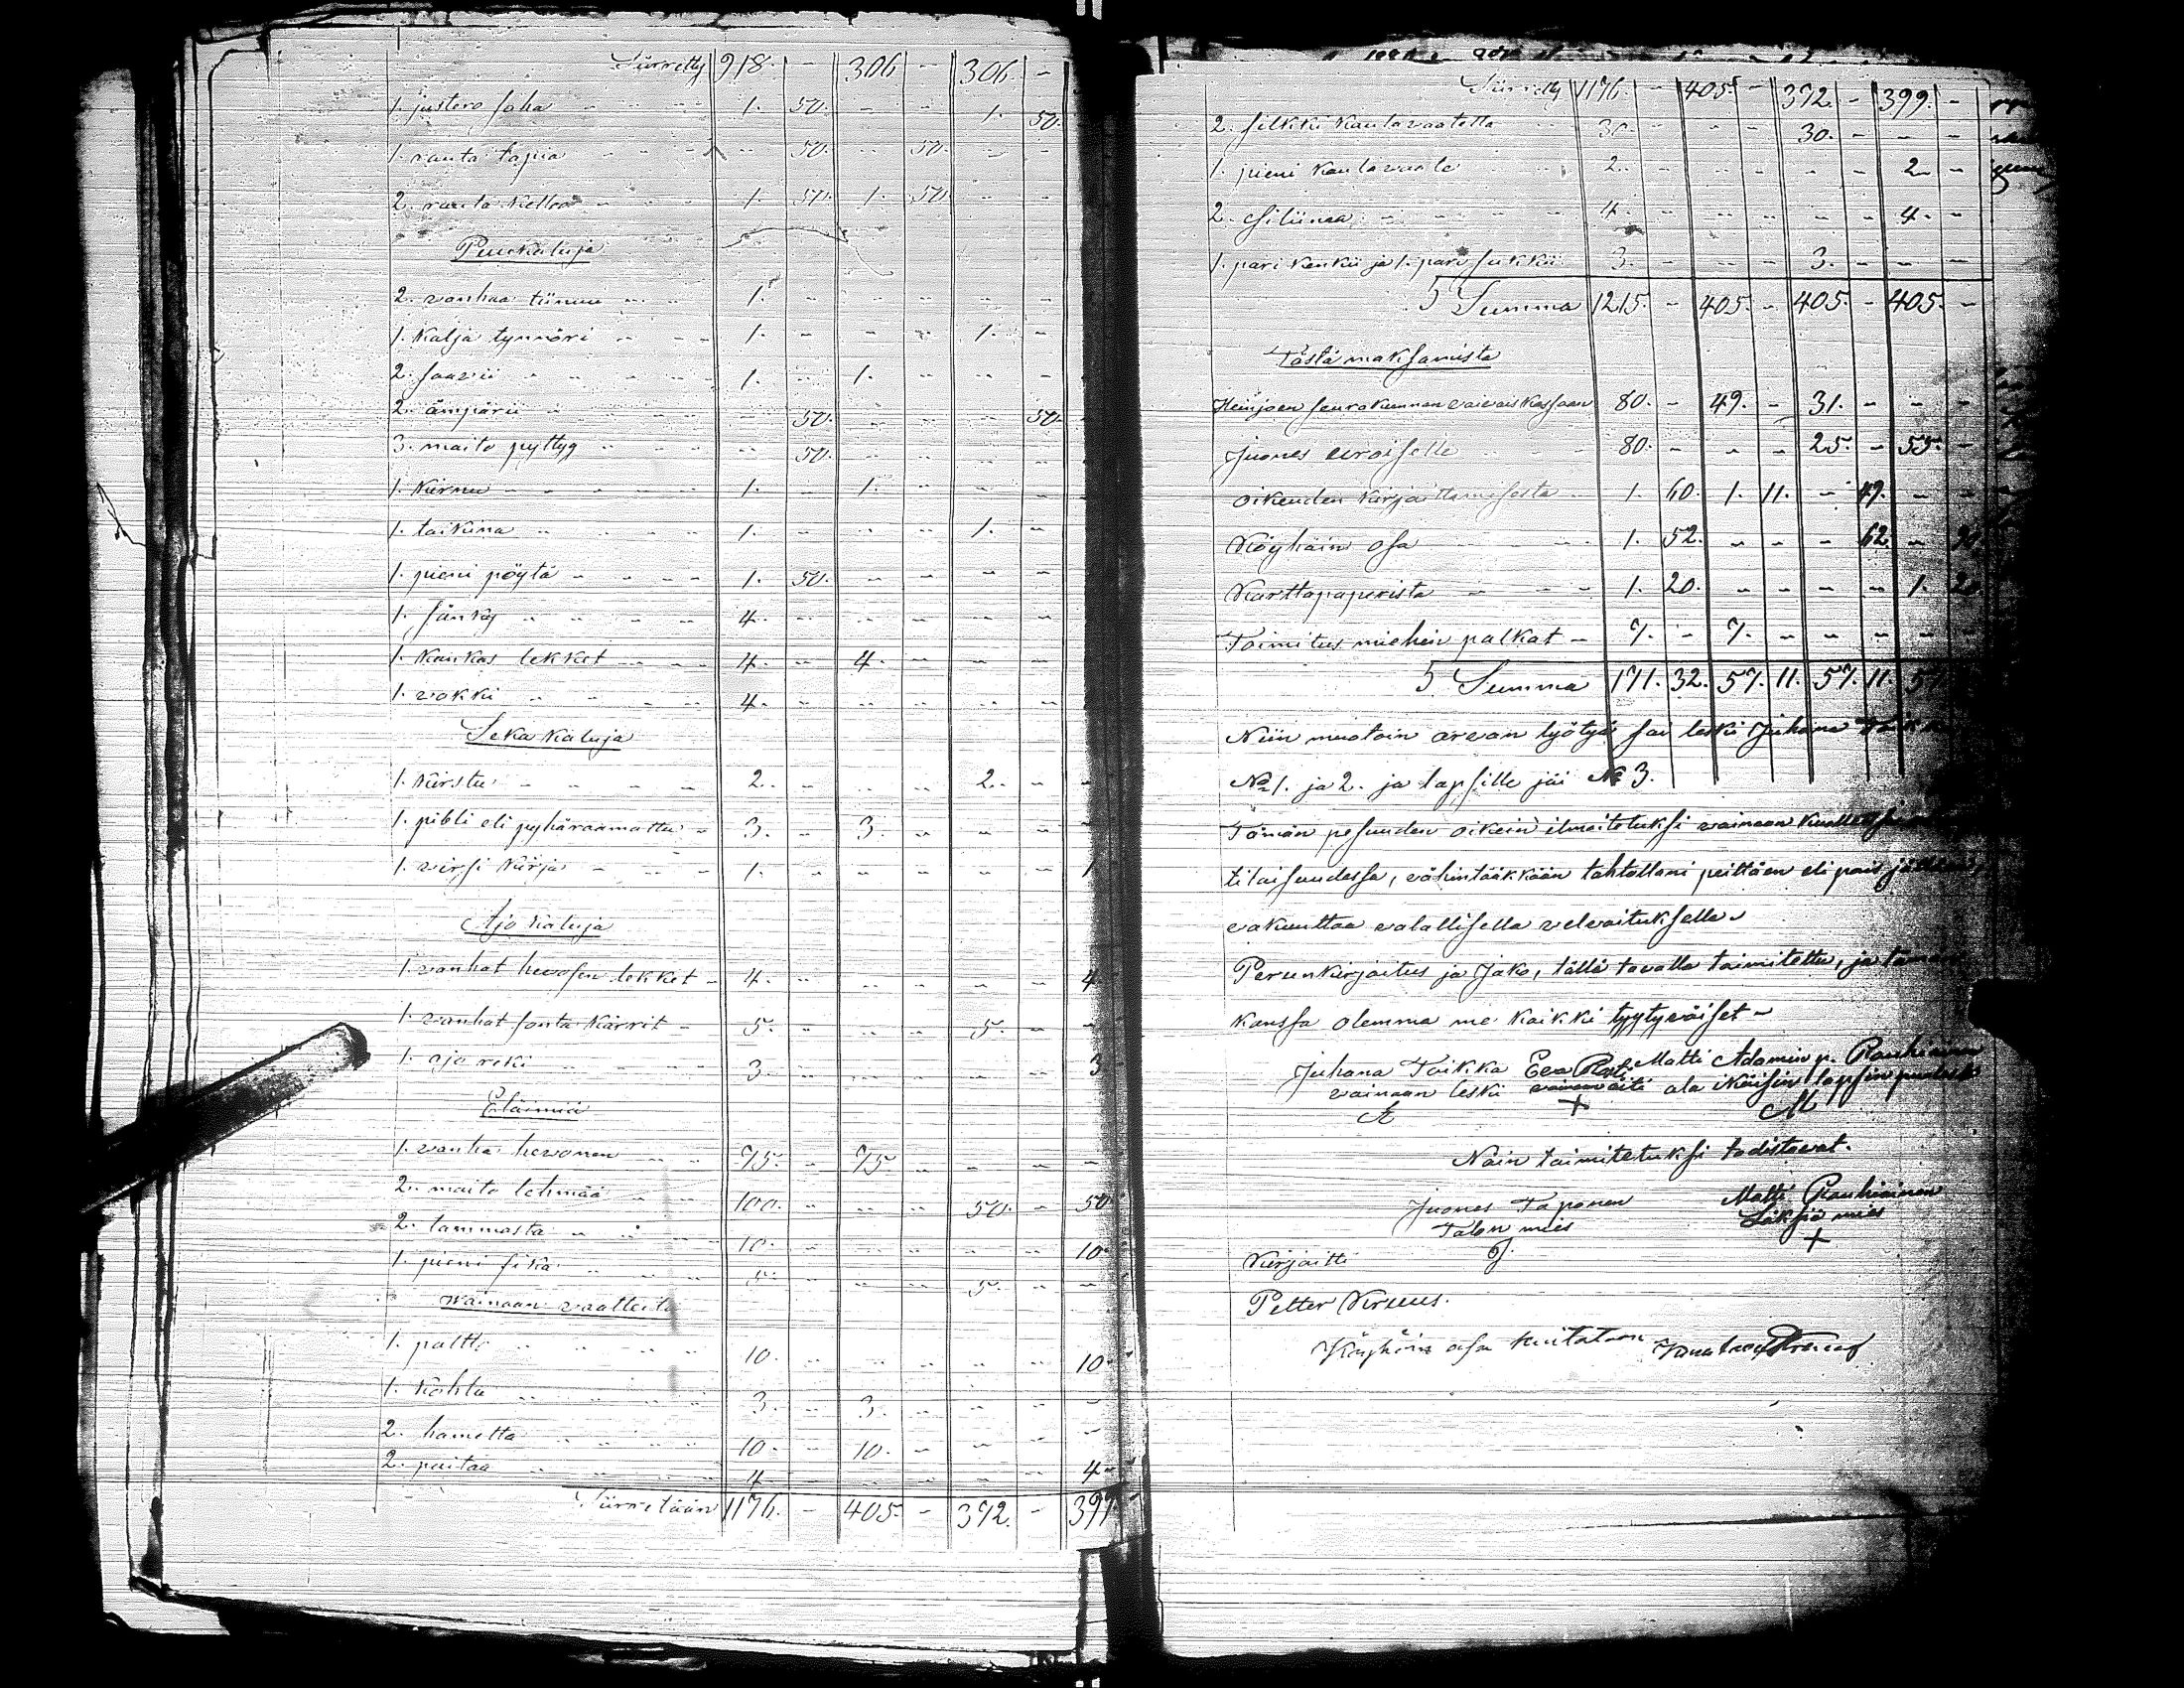 Siirretty 918. - 306 - 306. -
1. justero saha 1. 50. - - 1. 50.
1. rauta lapia - 50. - 50. - -
2. rauta 1. 50. 1. 50. - -
Puukaluja
2. vanhaa tiinua 1. - - - - -
1. kalja tynnöri 1. - - - 1. -
2. saavii 1. - 1. - - -
2. ämpärii - 50. - - - 50.
3. maito pyttyä - 50. - - - -
1. kirnu 1. - 1. - - -
1. taikina 1. - - - 1. -
1. pieni pöytä 1. 50. - - - -
1. sänky 4. - - - - -
1. kankas lekket 4. - 4. - - -
1. vokki 4. - - - - -
Seka kaluja
1. kirstu 2. - - - 2. - -
1. pibli eli pyhäraamattu 3. - 3. - - - -
1. virsi kirja 1. - - - - - 1
Ajo kaluja
1. vanhat hevosen lekket 4. - - - - - 4
1. vanhat sonta kärrit 5. - - - 5. - -
1. ajo reki 3. - - - - - 3
Eläimiä
1. vanha hevonen 75. - 75. - - - -
2. maito lehmää 100. - - - 50. - 50
2. lammasta 10. - - - - - 10.
1. pieni sika 5. - - - 5. - -
wainaan vaatteita
1. paltto 10. - - - - - 10.
1. kohta 3. - 3. - - - -
2. hametta 10. - 10. - - - -
2. paitaa 4. - - - - - 4 -
Siirretään 1176. - 405. - 372. - 399.
Siirretty 1176. - 405. - 372. - 399. -
2. silkki kaulavaatetta 30. - - - 30. - - -
1. pieni kaulavaate 2. - - - - - 2 -
2. siliinca 4. - - - - - 4. -
1. pari kenkii ja 1. pari sukkii 3. - - - 3. - - -
S Summa 1215. - 405. - 405. - 405. -
Tästä maksamista
Heinjoen seurakunnan vaivaiskassaan 80. - 49. - 31. - - -
Juones 80. - - - 25. - 55. -
oikeuden kirjoittamisesta 1. 60. 1. 11. - 49. - -
Köyhäin osa 1. 52. - - - 62. - 90.
Karttapaperista 1. 20. - - - - 1. 20
Toimitus miehein palkat 7. - 7. - - - - -
S Summa 171. 32. 57. 11. 57. 11. 57
Niin muotoin arvan lyötyä sai leski Juhana Toikka
No 1. ja 2. ja lapsille jäi No 3.
Tämän pesuuden oikein ilmoitetuksi vainaan
tilaisuudessa, vähintääkkään tahtollani peittäen eli pois
vakuuttaa valallisella velvoituksella
Perunkirjoitus ja Jako, tällä tavalla toimitettu, ja
kanssa olemma me kaikki tyytyväiset -
Juhana Toikka Eeva Matti Adamin p. Rauhiainen
vainaan leski vainaan äiti ala ikäisin lapsin puolesta
+
Näin toimitetuksi todistavat.
Juones Taponen Matti Rauhiainen
Talon mies Läksiä mies
J. +
Kirjoitti
Petter Kruus.
Köyhöin osa kuitataan